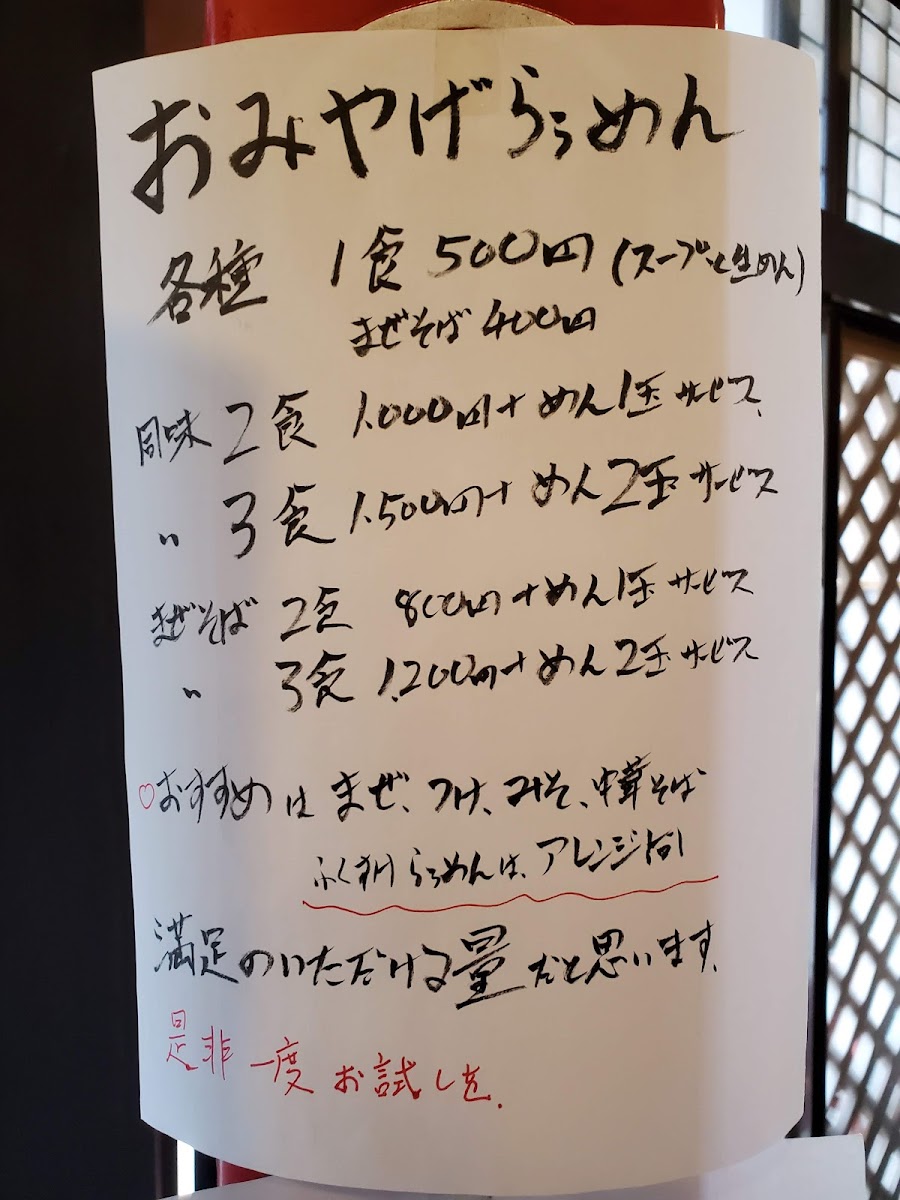 おみやげらぅめん
各種 1食 500円(スープと生めん)
まぜそば 400円
同味 2食 1.000円+めん1玉サービス、
〃 3食 1.500円+めん2玉サービス
まぜそば 2食 800円+めん1玉サービス
〃 3食 1.200円+めん2玉サービス
♡おすすめは まぜ、つけ、みそ、中華そば
らぅめんは、アレンジ向
満足のいただける量だと思います。
是非一度お試しを.